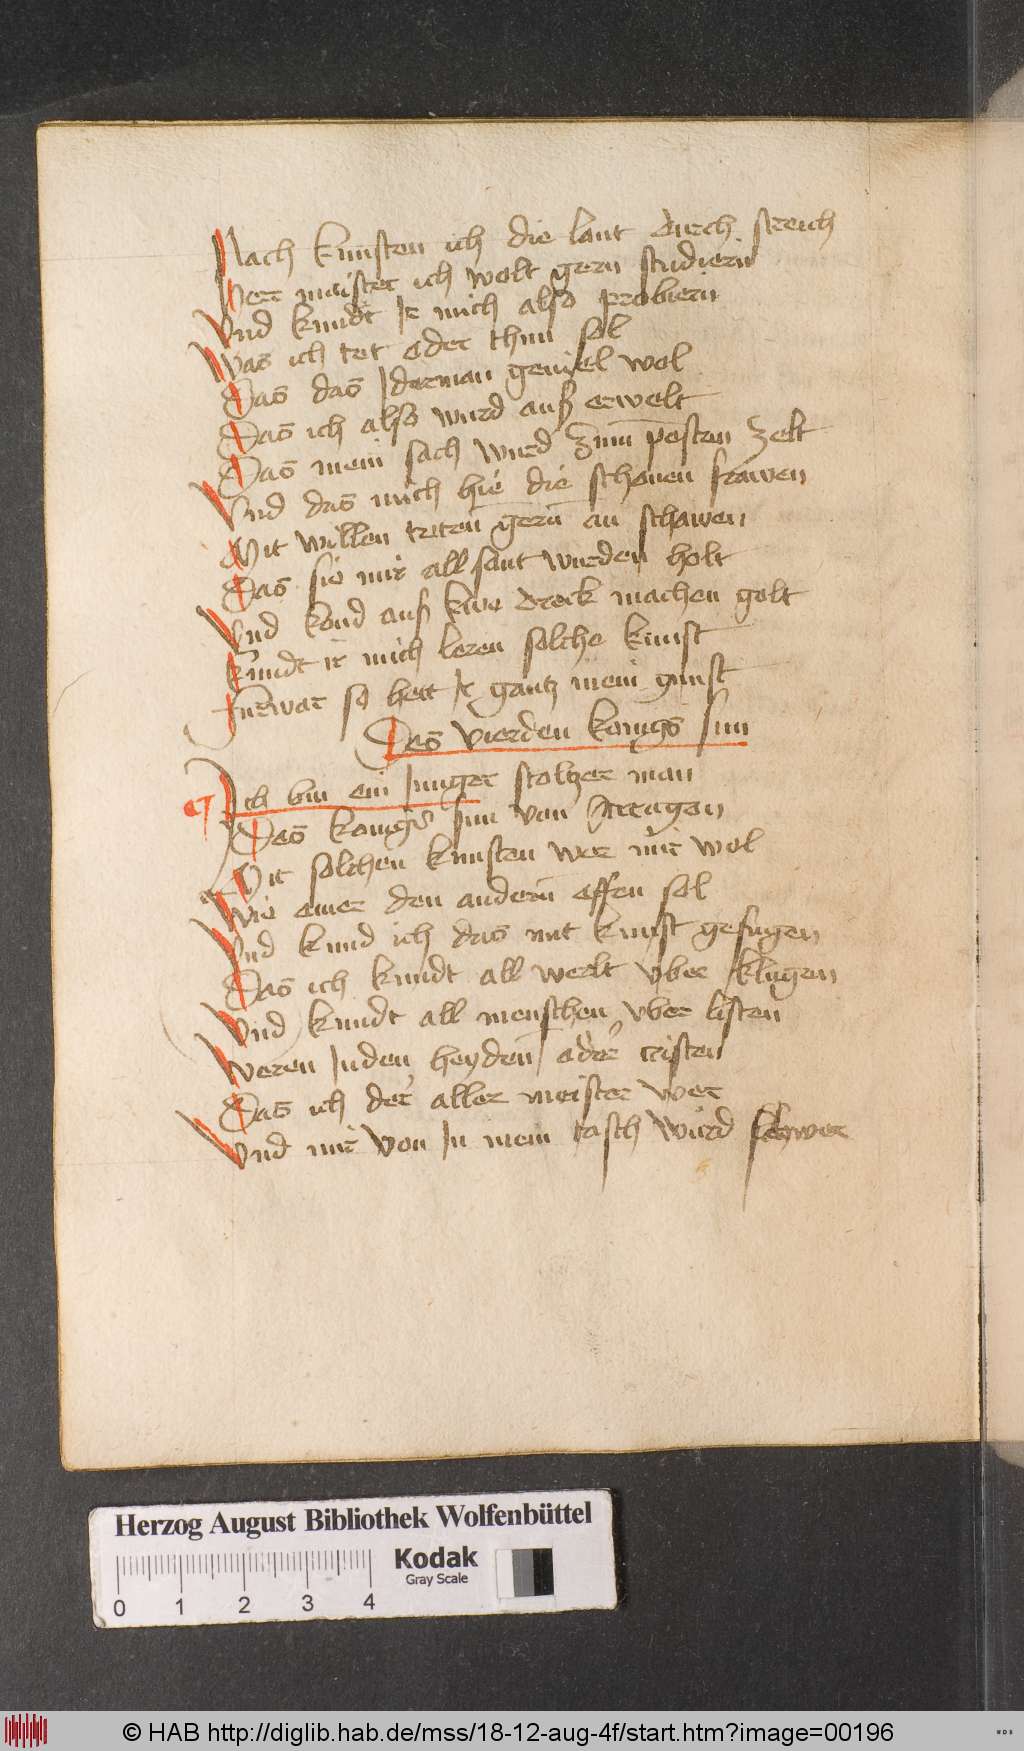 Nach kunsten ich die lant durch streich
Herr maister ich wolt gern studiern
Vnd kundt Ir mich also probiern
Was ich tet oder thun sol
Das das Iderman geuiel wol
Das ich also wurd auß erwelt
Das mein sach wurd zum posten zelt
Vnd das mich hie die schonen frawen
Mit willen teten gern an schawen
Das sie mir all sant wurden holt
Vnd kond auß kwe dreck machen golt
Kundt ir mich leren solche kunst
Furwar so hett Ir gantz mein gunst
Des vierden konigs sun
Ich bin ein Junger stoltzer man
Des konigs sun von Arragon
Mit solchen kunsten wer mir wol
Wie einer den andern effen sol
Vnd kund ich das mit kunst gefugen
Das ich kundt all werlt vber klugen
Vnd kundt all menschen vber listen
Weren Juden heyden oder cristen
Das ich der aller meister wer
Vnd mir von In mein tasch wurd schwer
Herzog August Bibliothek Wolfenbüttel
Kodak
Gray Scale
0 1 2 3 4
© HAB http://diglib.hab.de/mss/18-12-aug-4f/start.htm?image=00196
WDB